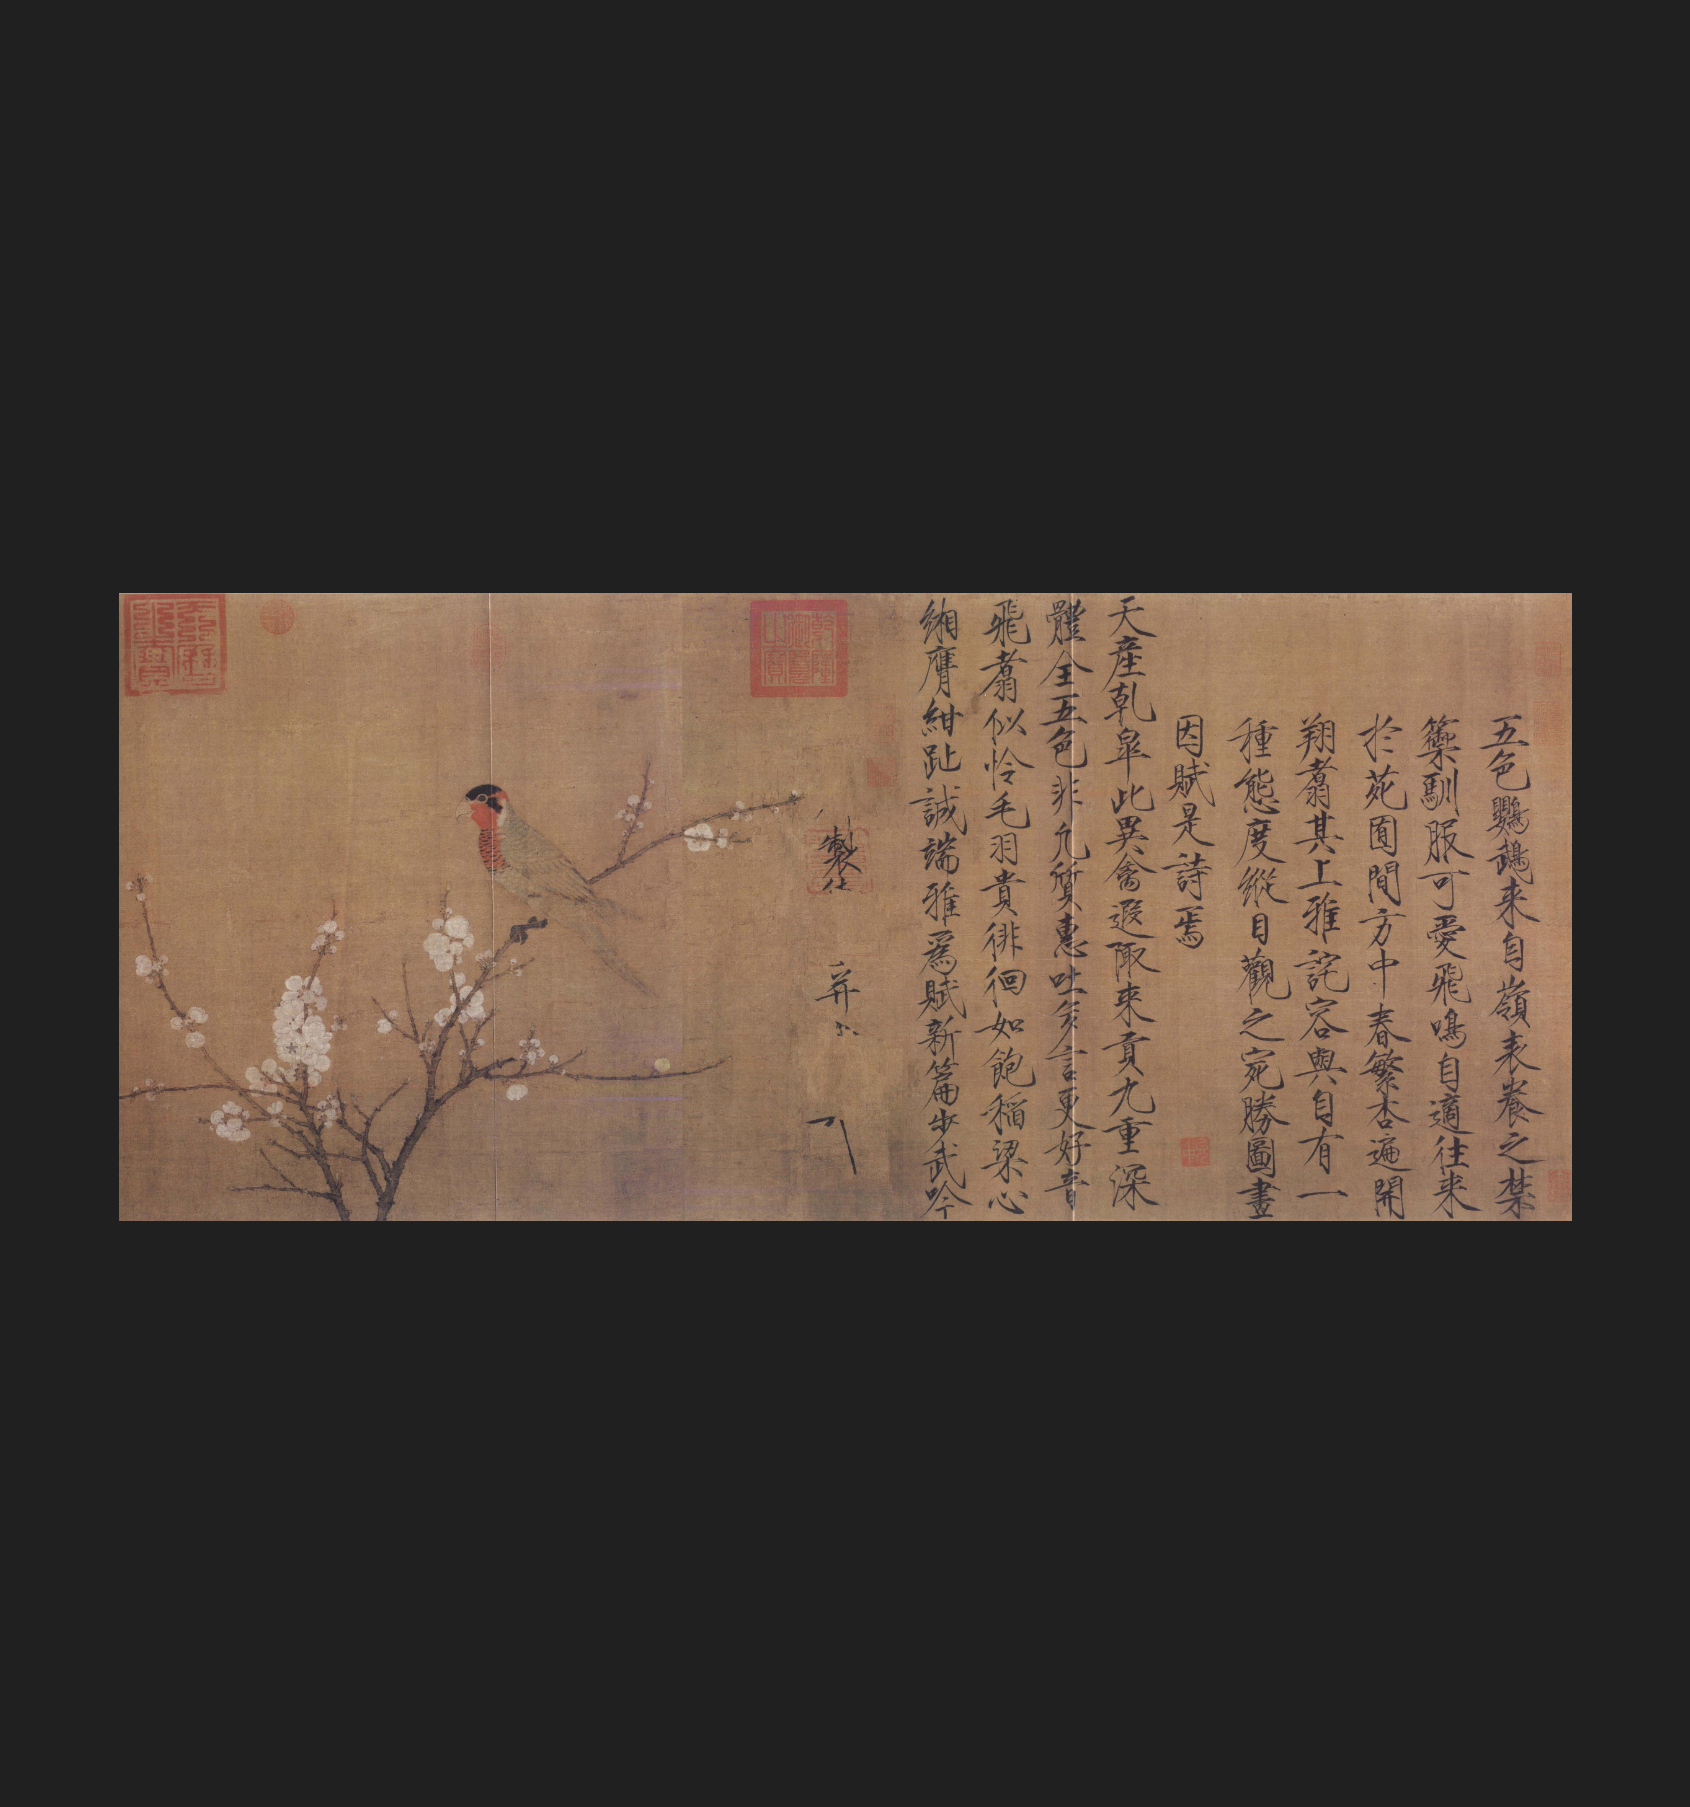 五色鸚鵡来自嶺表養之禁
籞馴服可愛飛鳴自適往来
扵苑囿間方中春繁杏遍開
翔翥其上雅詫容與自有一
種態度縱目觀之宛勝圖畫
因賦是詩焉
天産乾皐此異禽遐陬来貢九重深
體全五色非凡質惠吐多言更好音
飛翥似怜毛羽貴徘徊如飽稲粱心
緗膺紺趾誠端雅爲賦新篇步武吟
製
并